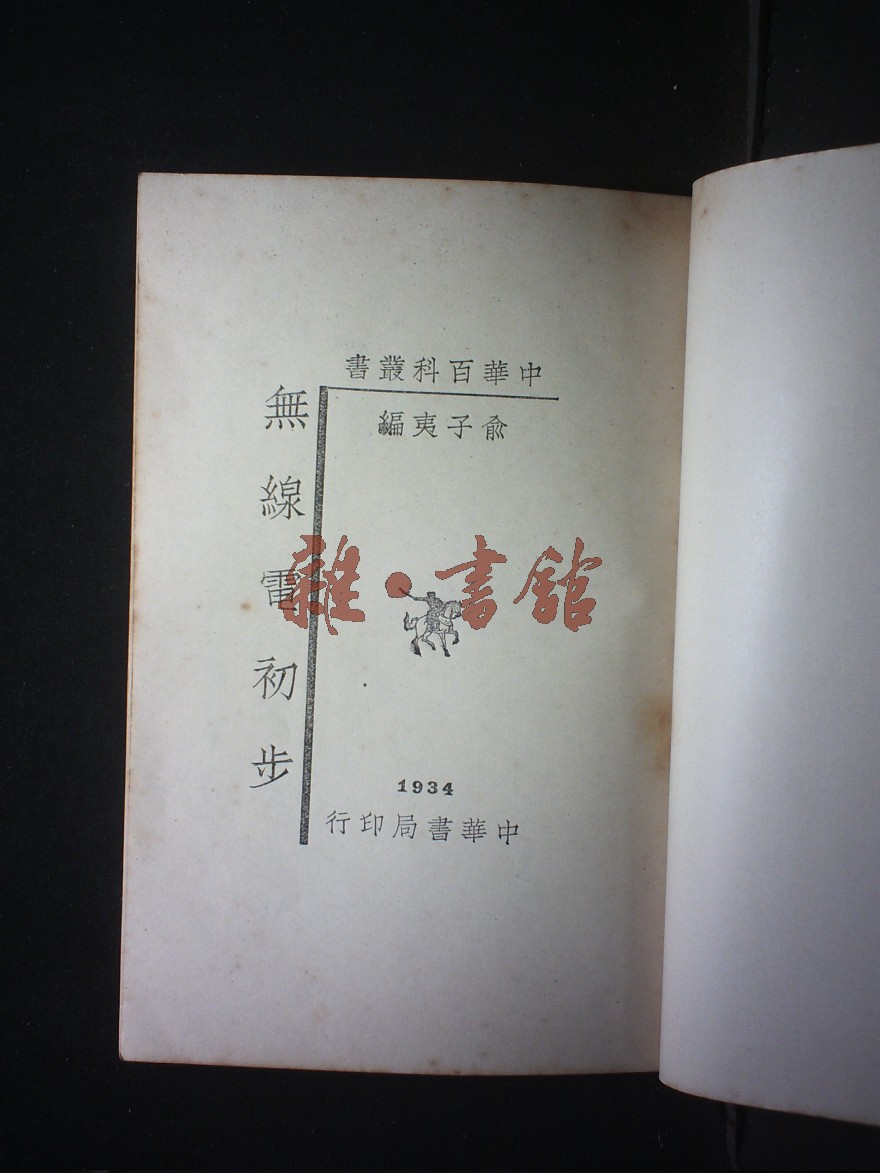 中華百科叢書
俞子夷編
無線電初步
雜·書館
1934
中華書局印行